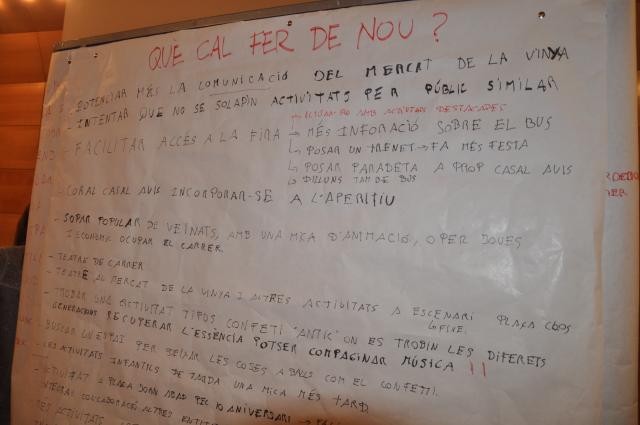 QUÈ CAL FER DE NOU?
- POTENCIAR MÉS LA COMUNICACIÓ DEL MERCAT DE LA VINYA
- INTENTAR QUE NO SE SOLAPIN ACTIVITATS PER PÚBLIC SIMILAR
AMB ACTIVITATS DESTACADES
- FACILITAR ACCÉS A LA FIRA
MÉS INFORACIÓ SOBRE EL BUS
POSAR UN TRENET → FA MÉS FESTA
POSAR PARADETA A PROP CASAL AVIS
DILLUNS TAMBE BUS
- CORAL CASAL AVIS INCORPORAR-SE A L'APERITIU
- SOPAR POPULAR DE VEINATS, AMB UNA MICA D'ANIMACIÓ, O PER JOVES
I ECONOMIC OCUPAR EL CARRER.
- TEATRE DE CARRER
- TEATRE AL MERCAT DE LA VINYA I ALTRES ACTIVITATS A ESCENARI PLAÇA
- TROBAR UNA ACTIVITAT TIPUS CONFETI "ANTIC" ON ES TROBIN LES DIFERETS
GENERACIONS RECUPERAR L'ESSÈNCIA POTSER COMPAGINAR MÚSICA !!
- BUSCAR UN ESPAI PER DEIXAR LES COSES A BALLS COM EL CONFETTI.
- LES ACTIVITATS INFANTILS DE TARDA UNA MICA MÉS TARD.
- ACTIVITAT A PLAÇA JOAN ABAD PEL 10 ANIVERSARI →
INTEGRAR COL·LABORACIÓ ALTRES
MÉS ACTIVITATS